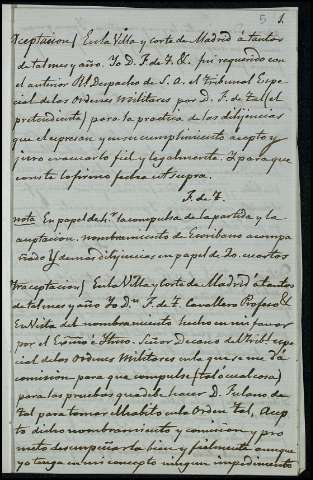 5 1.
Aceptacion / En la Villa y corte de Madrid á tantos
de tal mes y año. Yo D. F. de F. &. fui requerido con
el anterior Rl. Despacho de S. A. el Tribunal Espe
cial de las Ordenes Militares por D. F. de tal (el
pretendiente) para la practica de las dilijencias
que el espresan y en su cumplimiento acepto y
juro evacuarlo fiel y legalmente. Y para que
conste lo firmo fecha ut supra.
F. de F.
nota En papel de la compulsa de la partida y la
aceptacion. nombramiento de Escribano acompa
ñado y demas dilijencias en papel de 20. cuartos
aceptacion / En la Villa y Corte de Madrid á tantos
de tal mes y año Yo Dn. F. de F. Cavallero Profeso &
En vista del nombramiento hecho en mi favor
por el Escmo é Iltmo. Señor Decano del Tribl. espe
cial de las Ordenes Militares en la que se me dá
comision para que compulse (tal ó cual cosa)
para las pruebas que debe hacer D. Fulano de
Tal para tomar el habito en la Orden tal, Acep
to dicho nombramiento y comision y pro
meto desempeñarla bien y fielmente aunque
yo tenga en mi concepto ningun impedimento